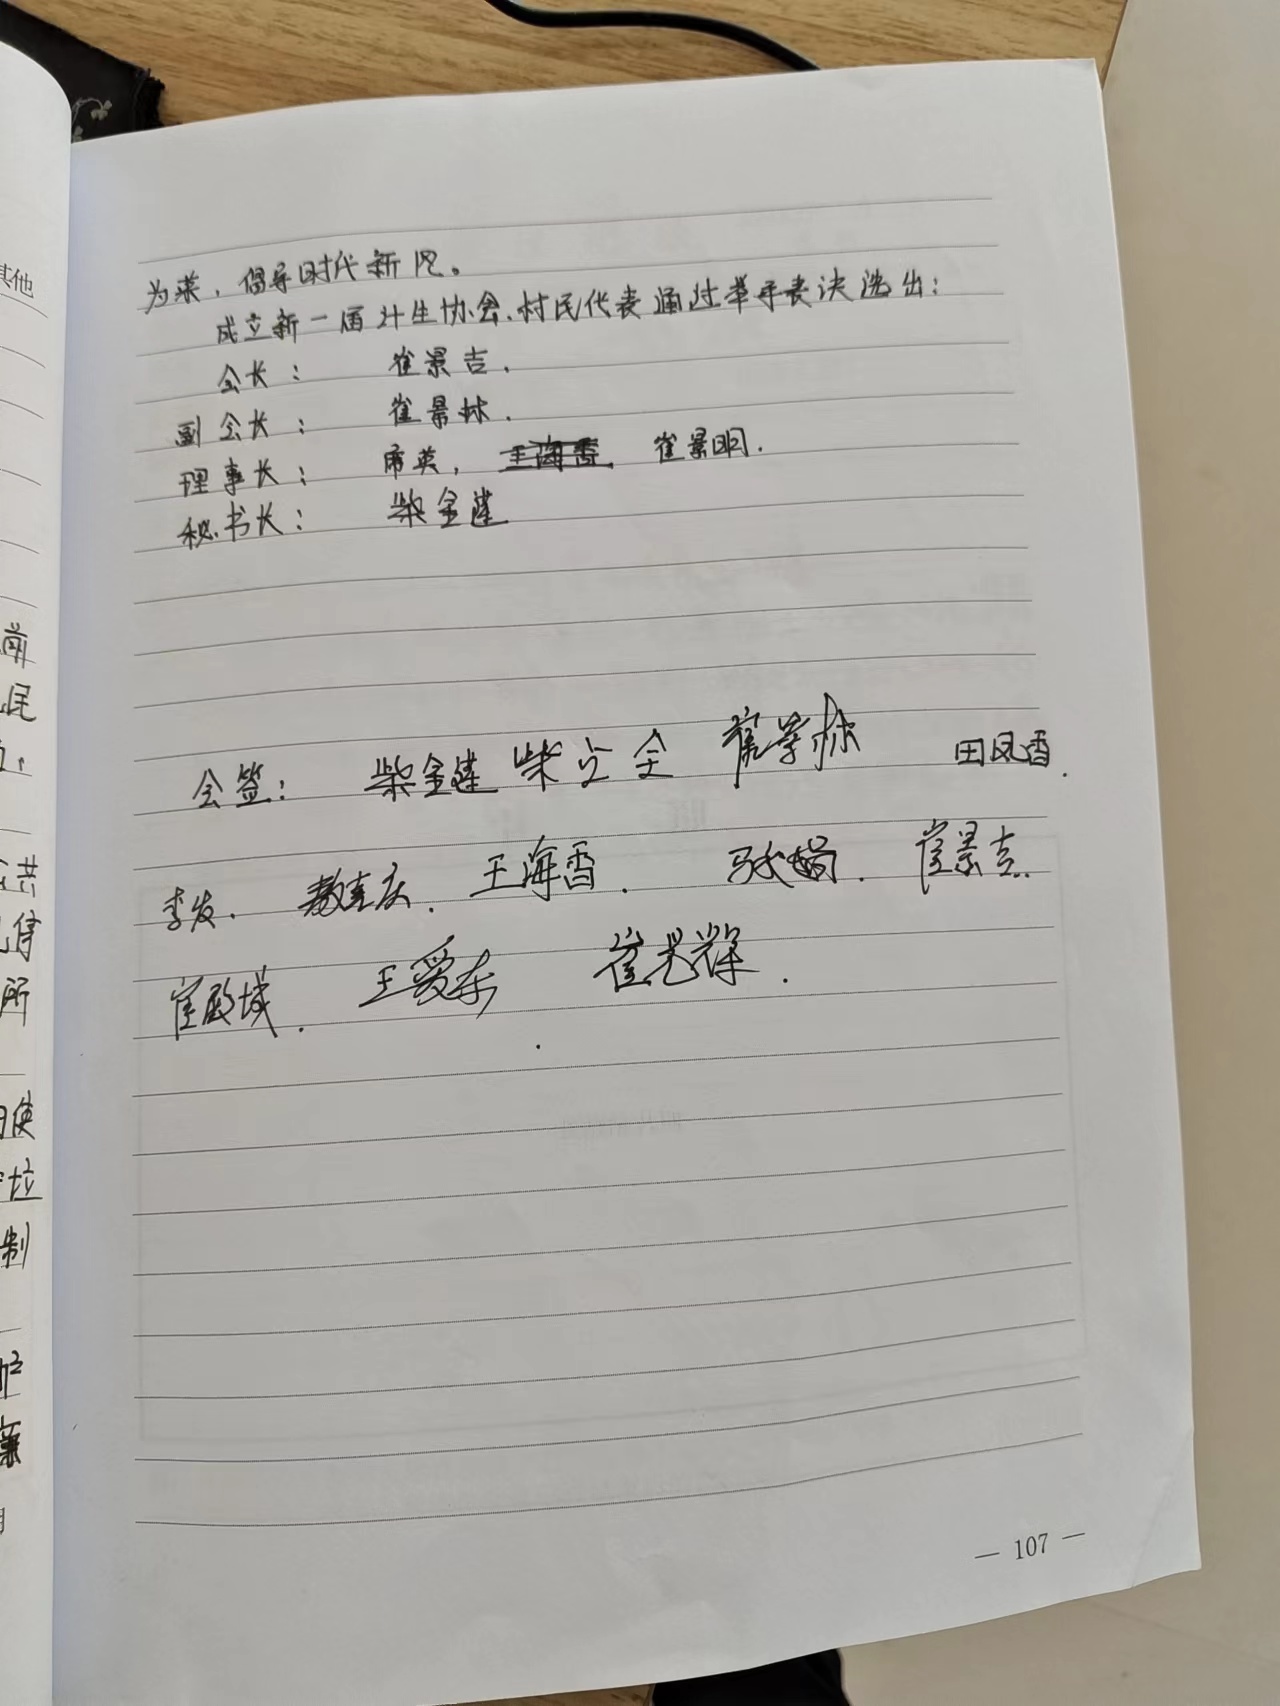 为荣，倡导时代新风。
成立新一届计生协会，村民代表通过举手表决选出：
会长： 崔景吉．
副会长： 崔景林．
理事长： 席英， 王海香， 崔景明．
秘书长： 柴金莲
会签： 柴金莲 柴立全 崔景林 田凤香．
李发． 王海香． 崔景吉．
崔殿城． 王爱东
— 107 —
其他
前
民
共
所
使
垃
制